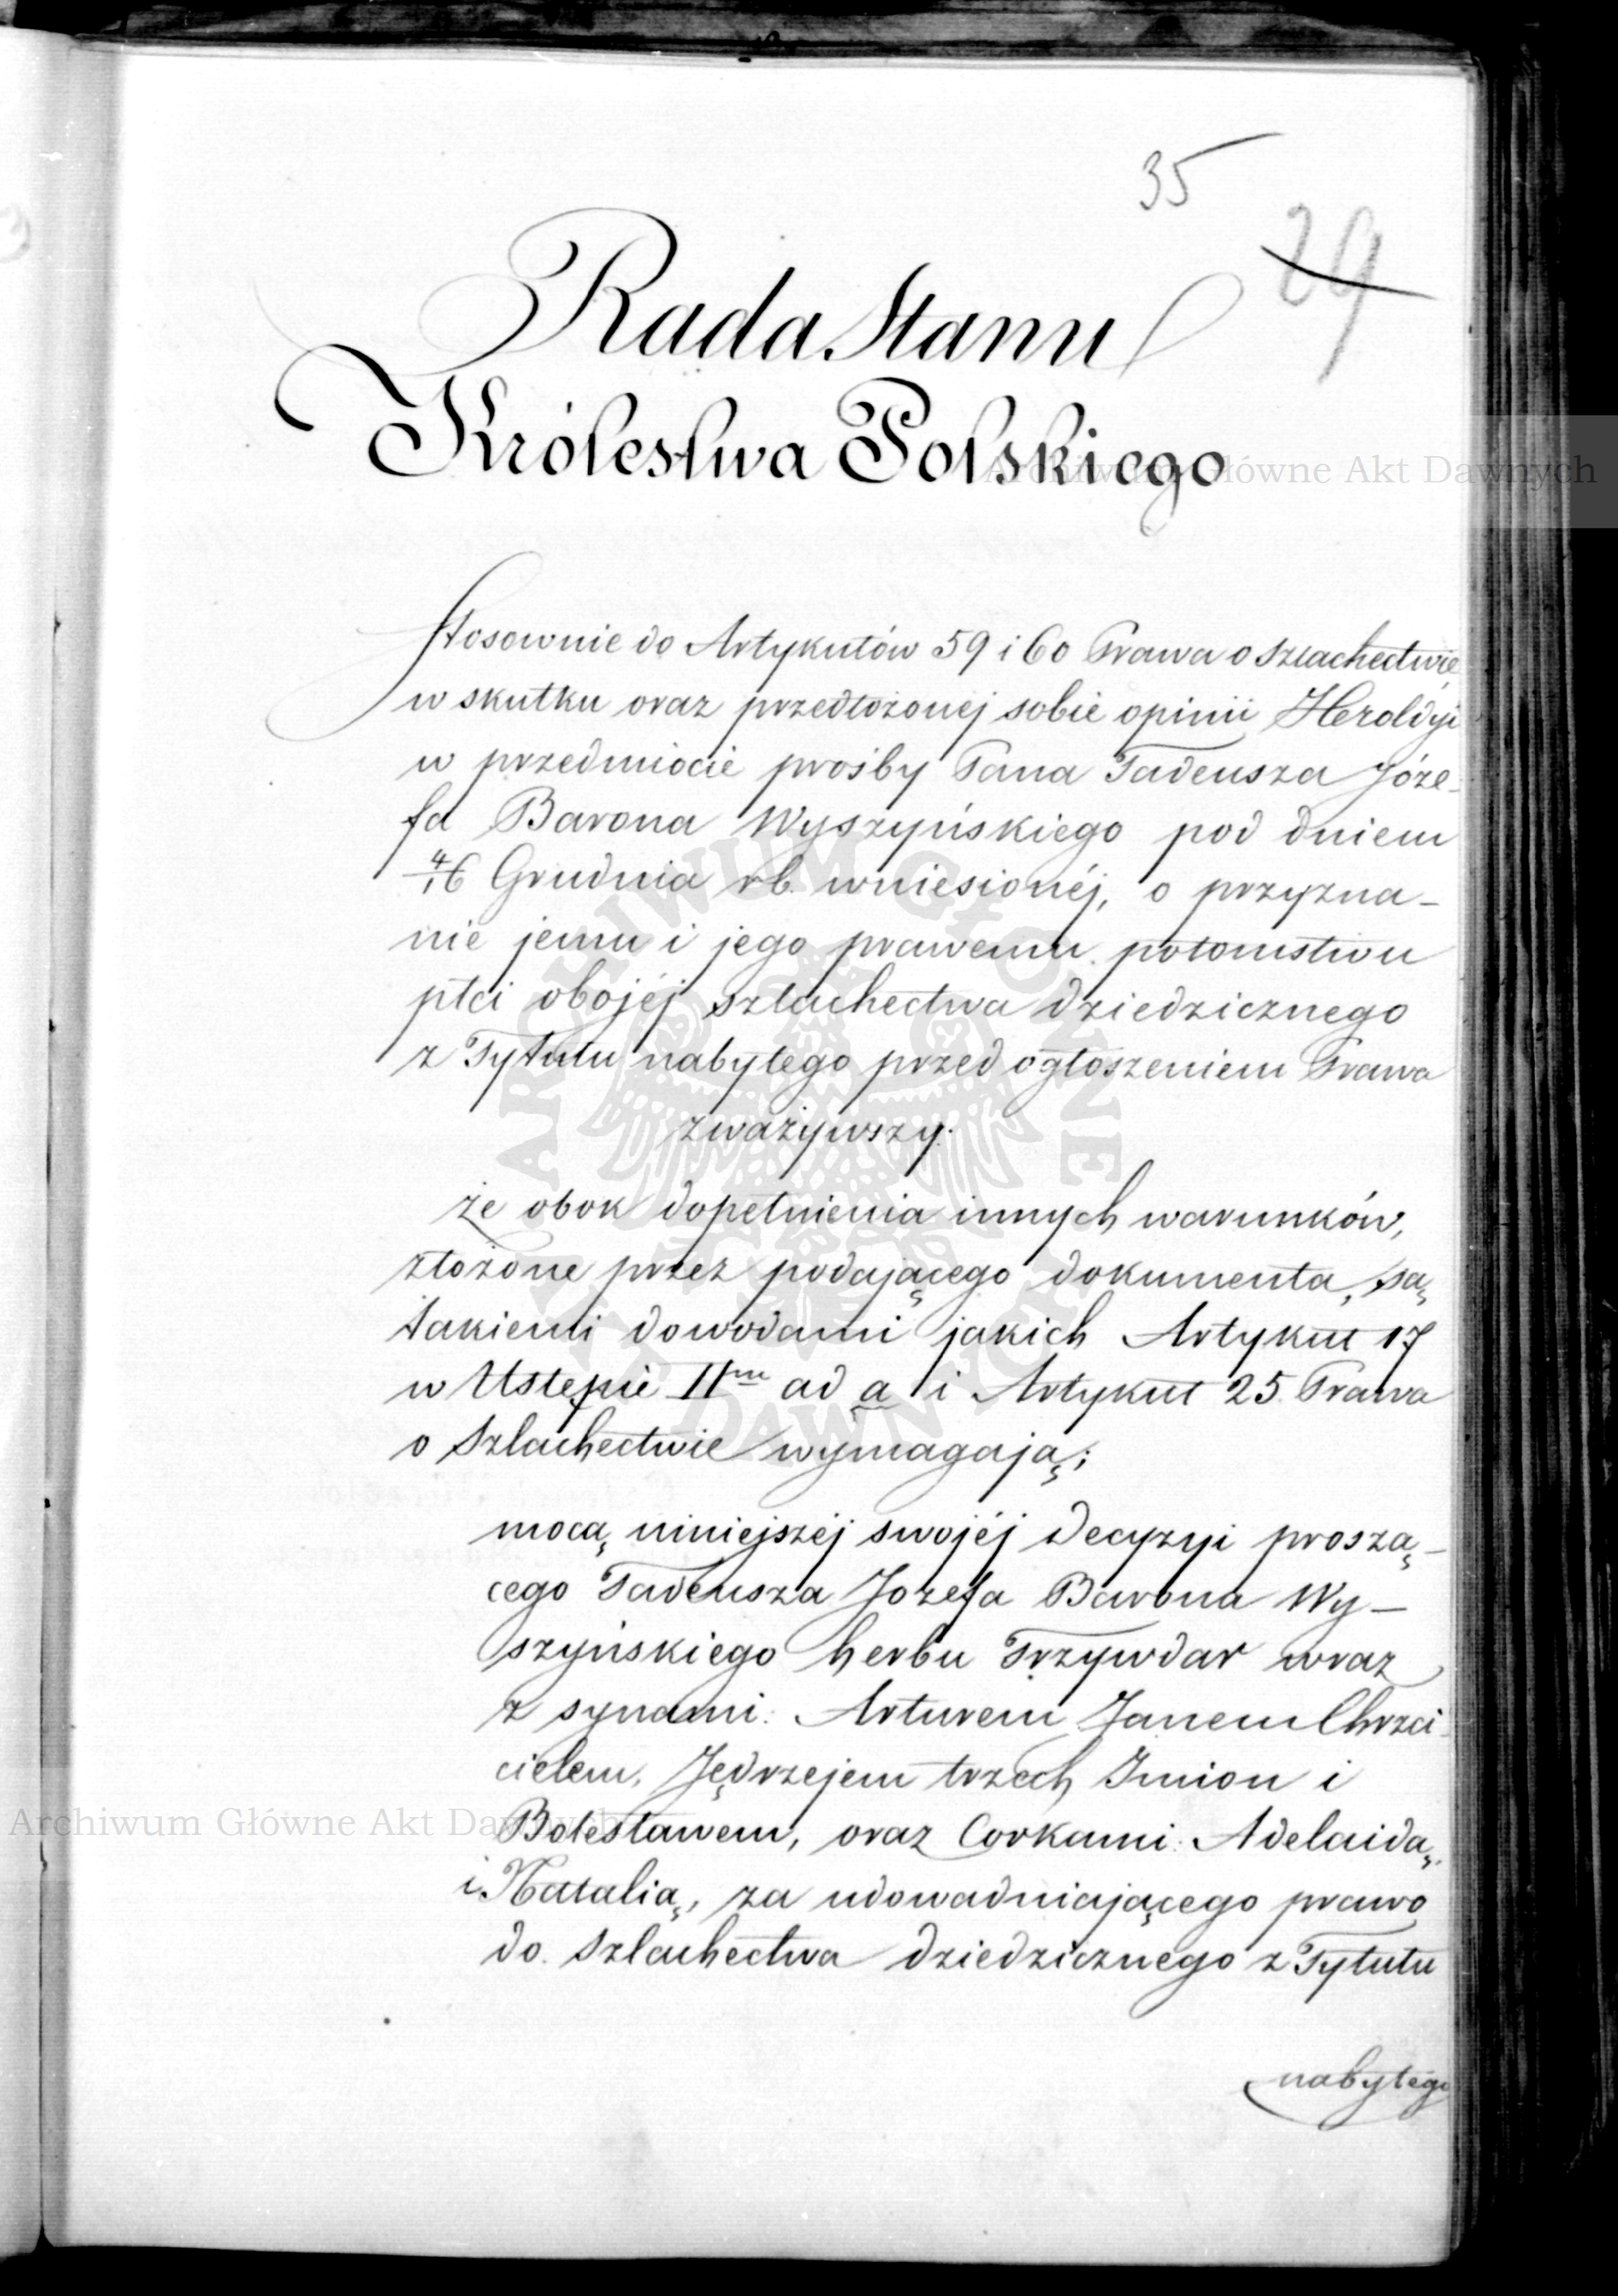 35
29
Rada Stanu
Królestwa Polskiego
Stosownie do Artykułów 59 i 60 Prawa o szlachectwie
w skutku oraz przedłożonej sobie opinii Heroldyi
w przedmiocie prośby Pana Tadeusza Józe-
fa Barona Wyszyńskiego pod dniem
4/16 Grudnia rb. wniesionéj, o przyzna-
nie jemu i jego prawemu potomstwu
płci obojéj szlachectwa dziedzicznego
z Tytułu nabytego przed ogłoszeniem Prawa
zważywszy:
że obok dopełnienia innych warunków,
złożone przez podającego dokumenta, są
takiemi dowodami jakich Artykuł 17
w Ustępie IIm ad a i Artykuł 25 Prawa
o Szlachectwie wymagają;
mocą niniejszéj swojéj decyzyi proszą-
cego Tadeusza Jozefa Barona Wy-
szyńskiego herbu Trzywdar wraz
z synami: Arturem Janem Chrzci-
cielem, Jędrzejem trzech Imion i
Bolesławem, oraz Corkami: Adelaidą,
i Natalią, za udowadniającego prawo
do Szlachectwa dziedzicznego z Tytułu
nabytego
Archiwum Główne Akt Dawnych
Archiwum Główne Akt Dawnych
ARCHIWUM GŁÓWNE AKT DAWNYCH